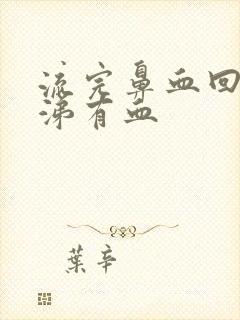 流完鼻血回
涕有血
葉辛